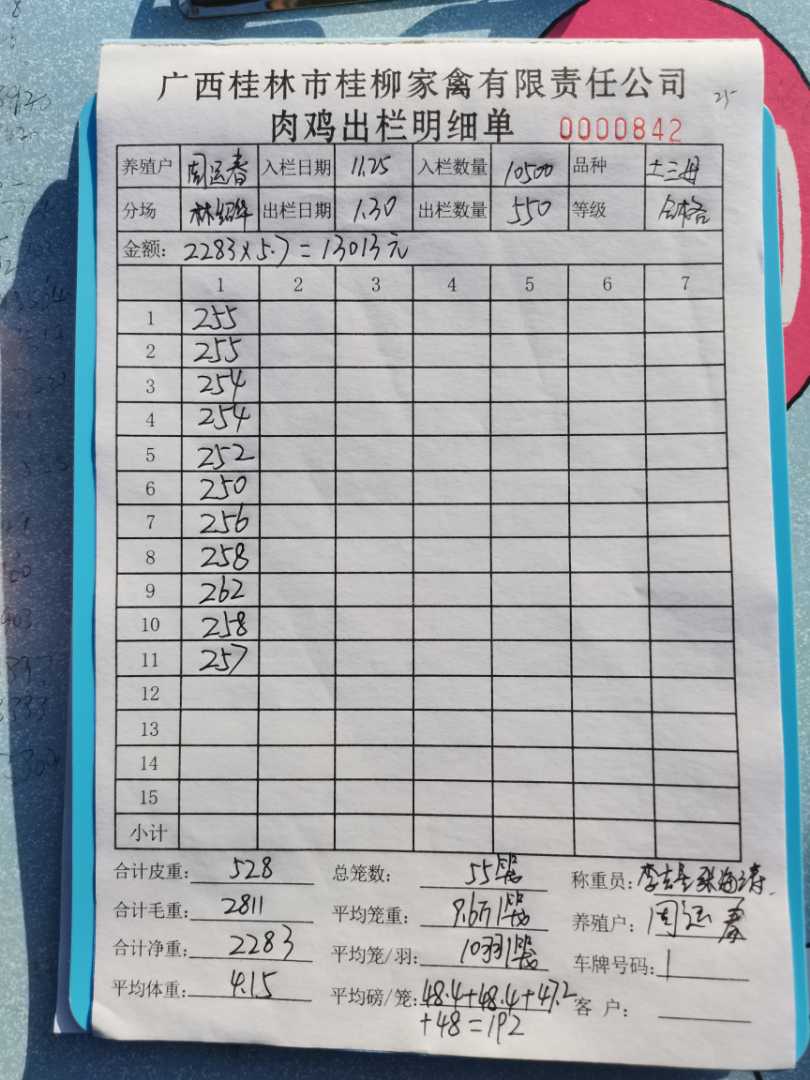 25
广西桂林市桂柳家禽有限责任公司
肉鸡出栏明细单 0000842
养殖户 周运春 入栏日期 11.25 入栏数量 10500 品种 土三月
分场 林绍华 出栏日期 1.30 出栏数量 550 等级 合格
金额: 2283×5.7=13013元
1 2 3 4 5 6 7
1 255
2 255
3 254
4 254
5 252
6 250
7 256
8 258
9 262
10 258
11 257
12
13
14
15
小计
合计皮重: 528 总笼数: 55 称重员:
合计毛重: 2811 平均笼重: 9.6 养殖户: 周运春
合计净重: 2283 平均笼/羽: 10羽 车牌号码:
平均体重: 4.15 平均磅/笼: 48.4+48.4+47.2 客户:
+48=192